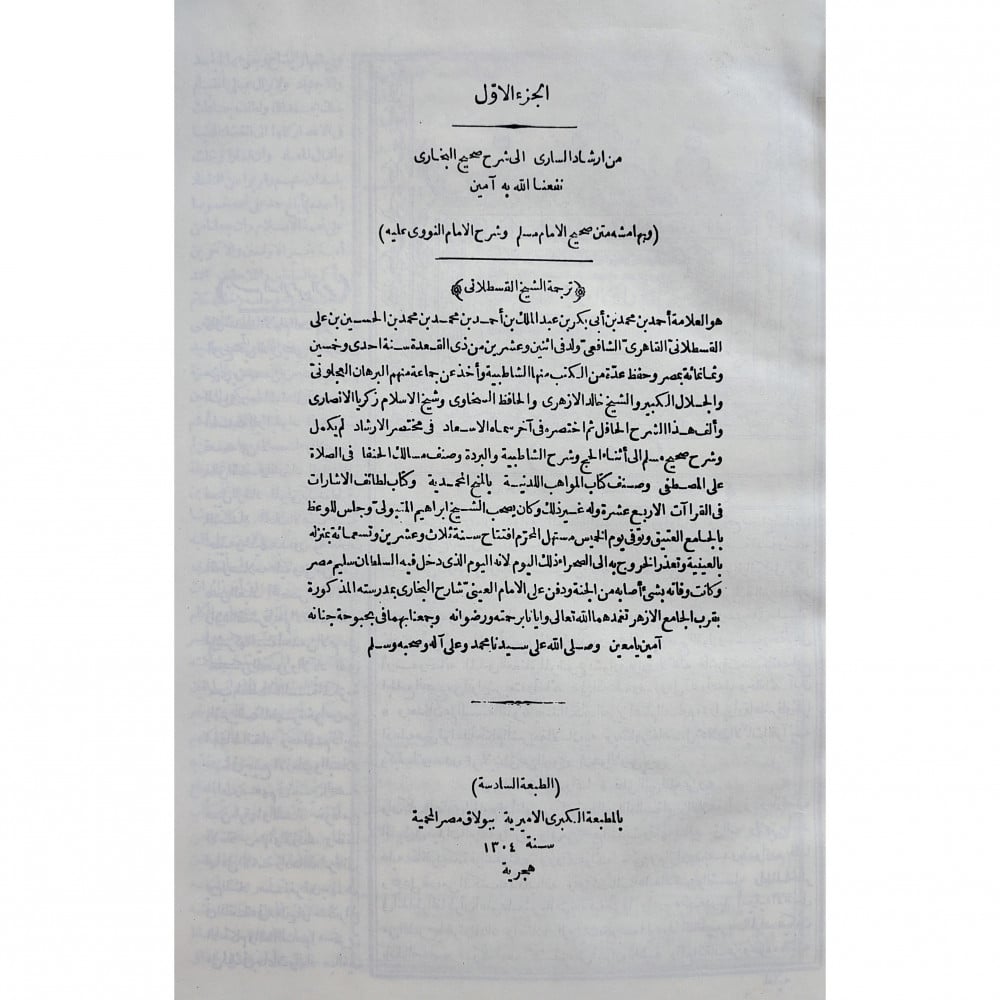 الجزء الاول
من ارشاد السارى الى شرح صحيح البخارى
نفعنا الله به آمين
(وبهامشه متن صحيح الامام مسلم وشرح الامام النووى عليه)
﴿ترجمة الشيخ القسطلانى﴾
هو العلامة أحمد بن محمد بن أبى بكر بن عبد الملك بن أحمد بن محمد بن محمد بن الحسين بن على
القسطلانى القاهرى الشافعى ولد فى اثنين وعشرين من ذى القعدة سنة احدى وخمسين
وثمانمائة بمصر وحفظ عدّة من الكتب منها الشاطبية وأخذ عن جماعة منهم البرهان العجلونى
والجلال الكبير والشيخ خالد الازهرى والحافظ السخاوى وشيخ الاسلام زكريا الانصارى
وألف هذا الشرح الحافل ثم اختصره فى آخر سماه الاسعاد فى مختصر الارشاد لم يكمل
وشرح صحيح مسلم الى أثناء الحج وشرح الشاطبية والبردة وصنف مسالك الحنفا فى الصلاة
على المصطفى وصنف كتاب المواهب اللدنية بالمنح المحمدية وكتاب لطائف الاشارات
فى القرآآت الاربع عشرة وله غير ذلك وكان يصحب الشيخ ابراهيم المتبولى وجلس للوعظ
بالجامع العتيق وتوفى يوم الخميس مستهل المحرّم افتتاح سنة ثلاث وعشرين وتسعمائة بمنزله
بالعينية وتعذر الخروج به الى الصحراء ذلك اليوم لانه اليوم الذى دخل فيه السلطان سليم مصر
وكانت وفاته بشئ أصابه من الجنة ودفن على الامام العينى شارح البخارى بمدرسته المذكورة
بقرب الجامع الازهر تغمدهما الله تعالى وايانا برحمته ورضوانه وجمعنا بهما فى بحبوحة جنانه
آمين يا معين وصلى الله على سيدنا محمد وعلى آله وصحبه وسلم
(الطبعة السادسة)
بالمطبعة الكبرى الاميرية ببولاق مصر المحمية
سنة ١٣٠٤
هجرية